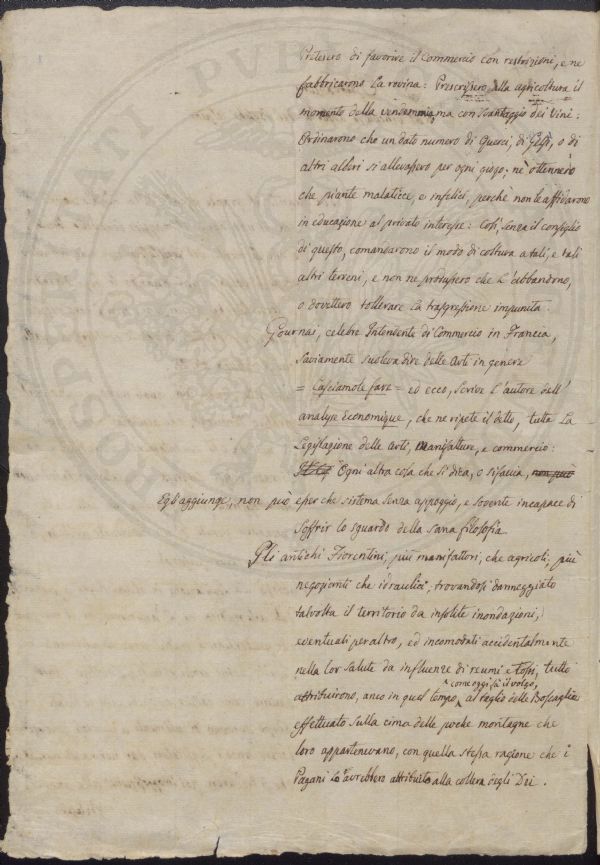 Pretesero di favorire il Commercio con restrizioni, e ne
fabbricarono la rovina: Prescrissero alla agricoltura il
momento della vendemmia, ma con svantaggio dei Vini:
Ordinarono che un dato numero di Querci, di Gelsi, o di
altri alberi si allevassero per ogni giogo; nè ottennero
che piante malaticce, e infelici, perchè non le affidarono
in educazione al privato interesse: Così, senza il consiglio
di questo, comandarono il modo di coltura a tali, e tali
altri terreni, e non ne produssero che l'abbandono,
o dovettero tollerare la trasgressione impunita.
Gournai, celebre Intendente di Commercio in Francia,
saviamente soleva dire delle Arti in genere
= Lasciamole fare = ed ecco, scrive l'autore dell'
analyse Economique, che ne ripete il detto, tutta la
Legislazione delle arti, manifatture, e commercio:
Ogni altra cosa che si dica, o si faccia, non può
Egli aggiunge, non può esser che sistema senza appoggio, e sovente incapace di
soffrir lo sguardo della sana filosofia.
Gli antichi Fiorentini, più manifattori, che agricoli, più
negozianti che idraulici, trovandosi danneggiato
talvolta il territorio da insolite inondazioni,
eventuali per altro, ed incomodati accidentalmente
nella lor salute da influenze di reumi e tossi, tutto
come oggi fà il volgo,
attribuirono, anco in quel tempo, al taglio delle Boscaglie
effettuato sulla cima delle poche montagne che
loro appartenevano, con quella stessa ragione che i
Pagani lo avrebbero attribuito alla collera degli Dei.